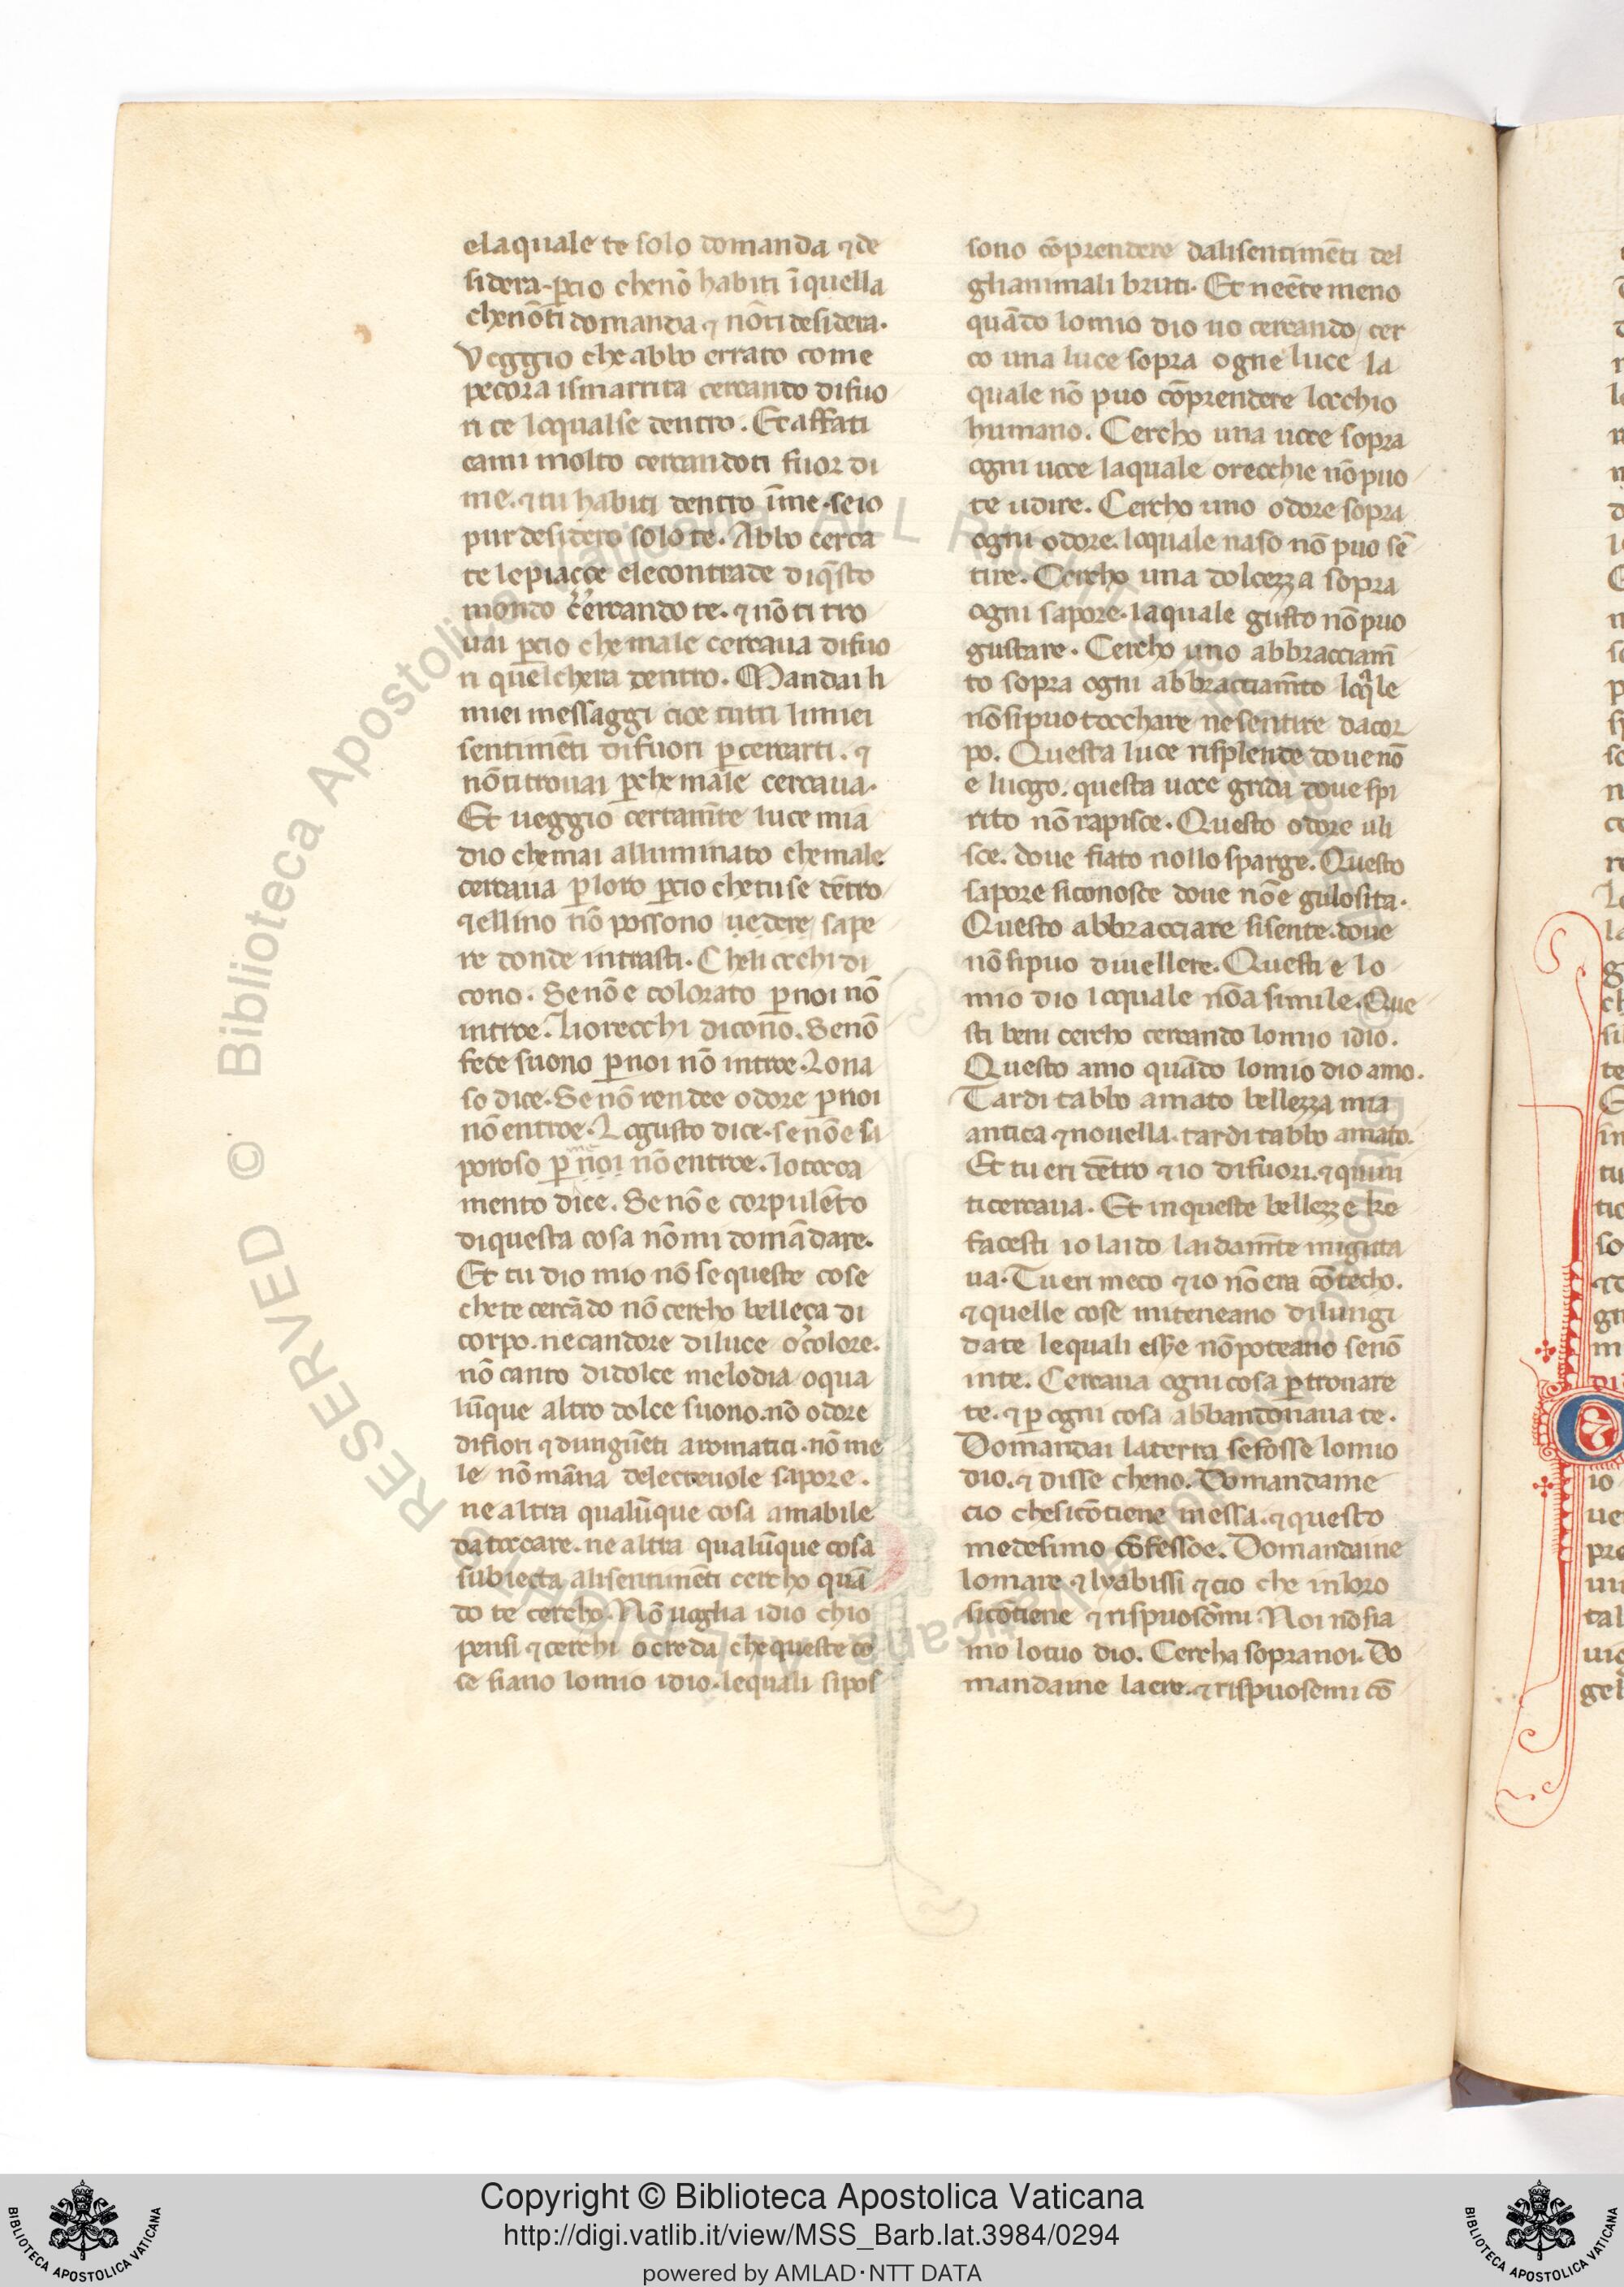 elaquale te solo domanda ⁊ de
sidera. ꝑcio chenō habiti īquella
chenōti domanda ⁊ nōti desidera.
Veggio che abbo errato come
pecora ismarrita cercando difuo
ri te loqualse dentro. Et affati
cami molto cercandoti fuor di
me. ⁊ tu habiti dentro īme. se io
pur desidero solo te. Abbo cerca
te le piacce ele contrade diq̄sto
mondo cercando te. ⁊ nō ti tro
uai ꝑcio che male cercaua difuo
ri quelchera dentro. Mandai li
miei messaggi cioe tutti limiei
sentimēti difuori ꝑ cercarti. ⁊
nōti trouai ꝑche male cercaua.
Et ueggio certam̄te luce mia
dio che mai alluminato chemale
cercaua ꝑ loro ꝑcio che tu se dētro
⁊ ellino nō possono uedere sape
re donde intrasti. Cheli occhi di
cono. Se nō e colorato ꝑ noi nō
introe. Li orecchi dicono. Se nō
fece suono ꝑ noi nō introe. Lo na
so dice. Se nō rendee odore ꝑ noi
nō entroe. Logusto dice. se nō e sa
poroso ꝑ noi nō entroe. Lo tocca
mento dice. Se nō e corpulēto
di questa cosa nō mi domādare.
Et tu dio mio nō se queste cose
che te cercādo nō cercho belleça di
corpo. ne candore di luce o colore.
nō canto didolce melodia / o qua
lūque altro dolce suono. nō odore
di fiori ⁊ dungūeti aromatici. nō me
le nō māna delecteuole sapore.
ne altra qualūque cosa amabile
da toccare. ne altra qualūque cosa
subiecta alisentimēti cercho quā
do te cercho. Nō uoglia idio chio
pensi ⁊ cerchi o creda che queste co
se siano lo mio idio. lequali si pos
sono cōprendere dalisentimēti del
gli animali bruti. Et neēte meno
quādo lo mio dio uo cercando / cer
co una luce sopra ogne luce la
quale nō puo cōprendere locchio
humano. Cercho una uoce sopra
ogni uoce laquale orecchie nō puo
te udire. Cercho uno odore sopra
ogni odore. loquale naso nō puo sē
tire. Cercho una dolcezza sopra
ogni sapore. laquale gusto nō puo
gustare. Cercho uno abbracciam̄
to sopra ogni abbracciam̄to loq̄le
nō si puo tocchare ne sentire da cor
po. Questa luce risplende doue nō
e luogo. questa uoce grida doue spi
rito nō rapisce. Questo odore uli
sce. doue fiato nollo sparge. Questo
sapore si conosce doue nō e gulosita.
Questo abbracciare si sente. doue
nō si puo diuellere. Questi e lo
mio dio loquale nō a simile. Que
sti beni cercho cercando lo mio idio.
Questo amo quādo lo mio dio amo.
Tardi tabbo amato bellezza mia
antica ⁊ nouella. tardi tabbo amato.
Et tu eri dētro ⁊ io difuori. ⁊ quiui
ti cercaua. Et in queste bellezze ke
facesti io laido laidam̄te migitta
ua. Tu eri meco ⁊ io nō era cō techo.
⁊ quelle cose mi teneano di lungi
da te lequali essere nō poteano senō
in te. Cercaua ogni cosa ꝑ trouare
te. ⁊ ꝑ ogni cosa abbandonaua te.
Domandai la terra se fosse lo mio
dio. ⁊ disse che no. Domandame
cio che si cōtiene in essa. ⁊ questo
medesimo cōfessoe. Domandaine
lo mare ⁊ lyabissi ⁊ cio che in loro
si cōtiene ⁊ rispuosōmi Noi nō sia
mo lo tuo dio. Cercha sopra noi. Do
mandaine laere. ⁊ rispuosemi cō
Copyright © Biblioteca Apostolica Vaticana
http://digi.vatlib.it/view/MSS_Barb.lat.3984/0294
powered by AMLAD·NTT DATA